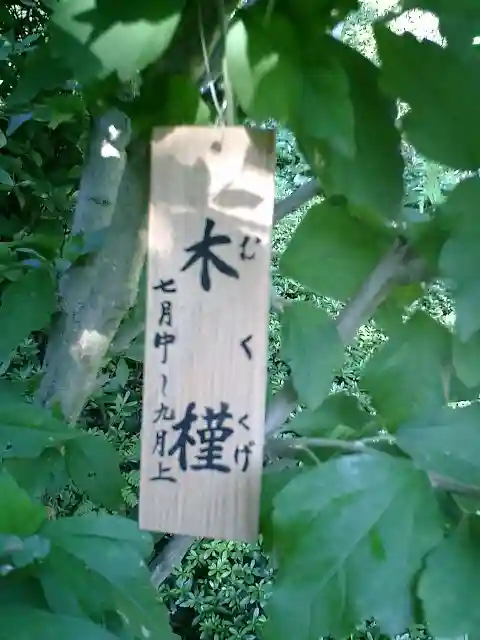 木槿
むくげ
七月中~九月上